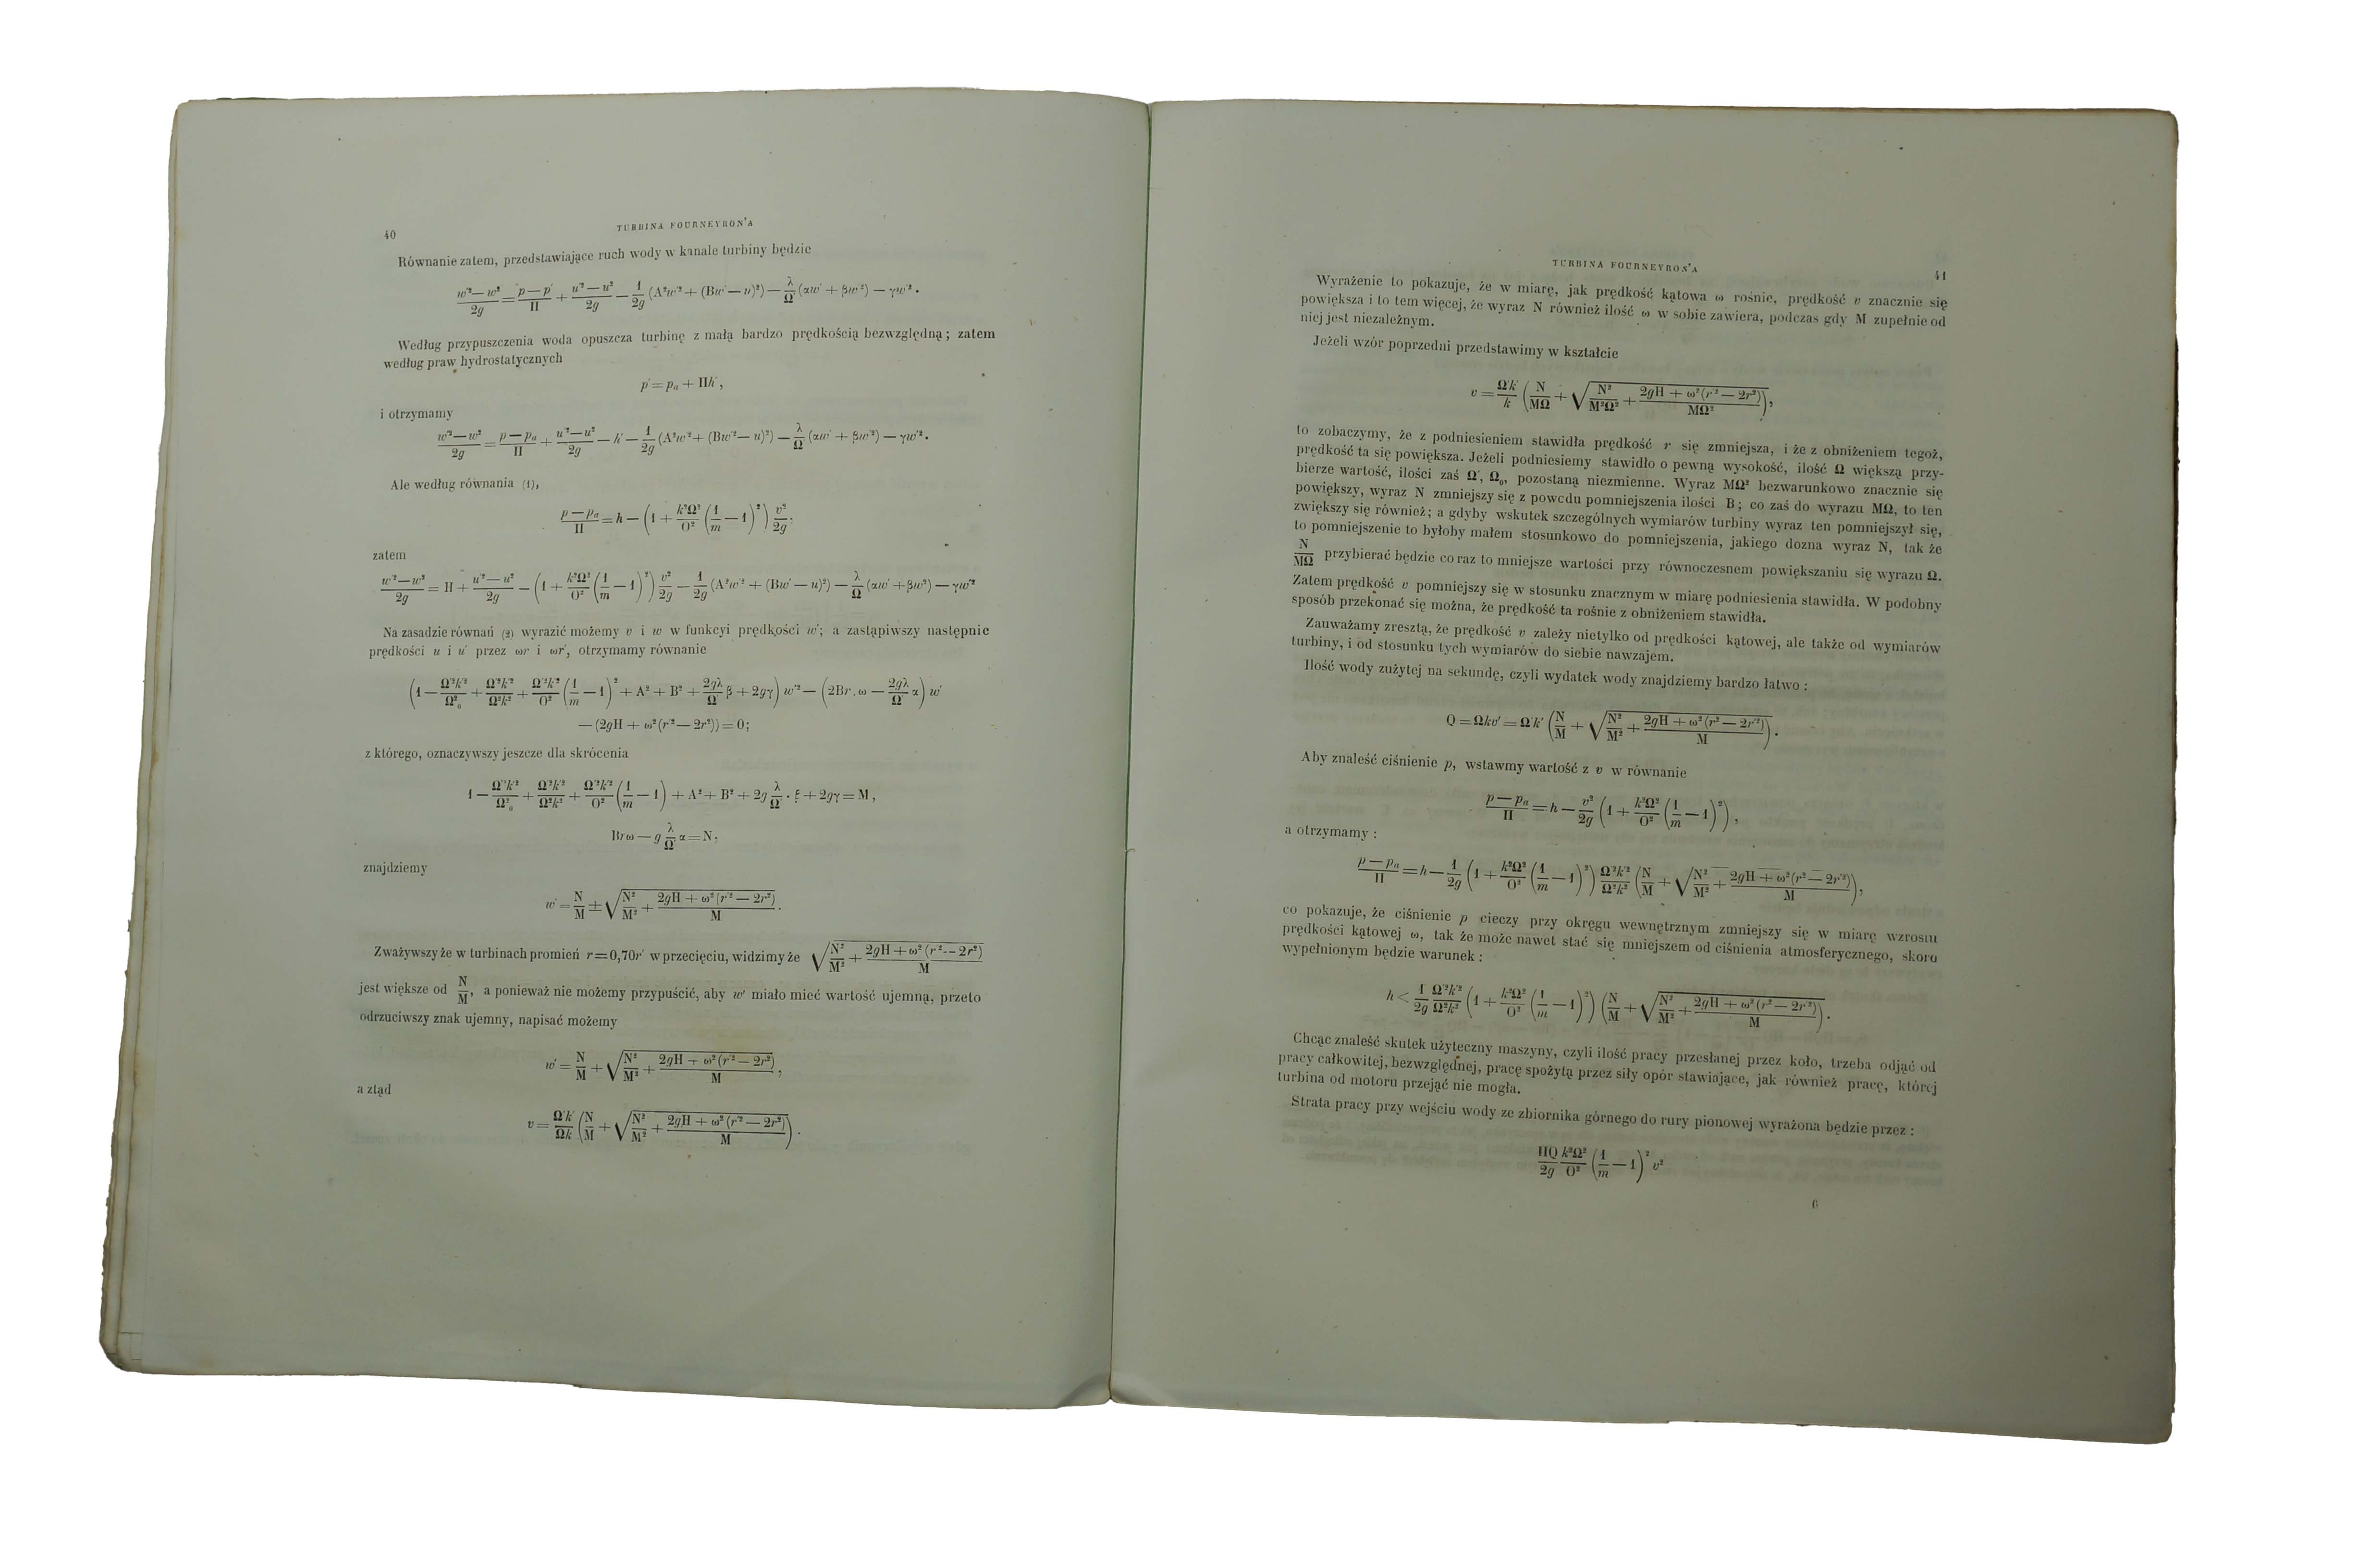 40
TURBINA FOURNEYRON'A
Równanie zatem, przedstawiające ruch wody w kanale turbiny będzie
(w'² — w²)/2g = (p — p')/Π + (u'² — u²)/2g — 1/2g (A²w'² + (Bw' — u)²) — λ/Ω' (αw' + βw'²) — γw'².
Według przypuszczenia woda opuszcza turbinę z małą bardzo prędkością bezwzględną; zatem
według praw hydrostatycznych
p' = pₐ + Πh',
i otrzymamy
(w'² — w²)/2g = (p — pₐ)/Π + (u'² — u²)/2g — h' — 1/2g (A²w'² + (Bw'² — u)²) — λ/Ω' (αw' + βw'²) — γw'².
Ale według równania (1),
(p — pₐ)/Π = h — (1 + k²Ω²/O² (1/m — 1)²) v²/2g.
zatem
(w'² — w²)/2g = H + (u'² — u²)/2g — (1 + k²Ω²/O² (1/m — 1)²) v²/2g — 1/2g (A²w'² + (Bw' — u)²) — λ/Ω' (αw' + βw'²) — γw'²
Na zasadzie równań (2) wyrazić możemy v i w w funkcyi prędkości w'; a zastąpiwszy następnie
prędkości u i u' przez ωr i ωr', otrzymamy równanie
(1 — Ω'²k'²/Ω²₀ + Ω'²k'²/Ω²k² + Ω'²k'²/O² (1/m — 1)² + A² + B² + 2gλ/Ω' β + 2gγ) w'² — (2Br.ω — 2gλ/Ω' α) w'
— (2gH + ω²(r'² — 2r²)) = 0;
z którego, oznaczywszy jeszcze dla skrócenia
1 — Ω'²k'²/Ω²₀ + Ω'²k'²/Ω²k² + Ω'²k'²/O² (1/m — 1) + A² + B² + 2g λ/Ω' . β + 2gγ = M,
Brω — g λ/Ω' α = N,
znajdziemy
w' = N/M ± √(N²/M² + (2gH + ω²(r'² — 2r²))/M).
Zważywszy że w turbinach promień r = 0,70r' w przecięciu, widzimy że √(N²/M² + (2gH + ω²(r'² — 2r²))/M)
jest większe od N/M, a ponieważ nie możemy przypuścić, aby w' miało mieć wartość ujemną, przeto
odrzuciwszy znak ujemny, napisać możemy
w' = N/M + √(N²/M² + (2gH + ω²(r'² — 2r²))/M),
a ztąd
v = Ω'k'/Ωk (N/M + √(N²/M² + (2gH + ω²(r'² — 2r²))/M)).
TURBINA FOURNEYRON'A
41
Wyrażenie to pokazuje, że w miarę, jak prędkość kątowa ω rośnie, prędkość v znacznie się
powiększa i to tem więcej, że wyraz N również ilość ω w sobie zawiera, podczas gdy M zupełnie od
niej jest niezależnym.
Jeżeli wzór poprzedni przedstawimy w kształcie
v = Ω'k'/k (N/MΩ + √(N²/M²Ω² + (2gH + ω²(r'² — 2r²))/MΩ²)),
to zobaczymy, że z podniesieniem stawidła prędkość r się zmniejsza, i że z obniżeniem tegoż,
prędkość ta się powiększa. Jeżeli podniesiemy stawidło o pewną wysokość, ilość Ω większą przy-
bierze wartość, ilości zaś Ω', Ω₀, pozostaną niezmienne. Wyraz MΩ² bezwarunkowo znacznie się
powiększy, wyraz N zmniejszy się z powodu pomniejszenia ilości B; co zaś do wyrazu MΩ, to ten
zwiększy się również; a gdyby wskutek szczególnych wymiarów turbiny wyraz ten pomniejszył się,
to pomniejszenie to byłoby małem stosunkowo do pomniejszenia, jakiego dozna wyraz N, tak że
N/MΩ przybierać będzie coraz to mniejsze wartości przy równoczesnem powiększaniu się wyrazu Ω.
Zatem prędkość v pomniejszy się w stosunku znacznym w miarę podniesienia stawidła. W podobny
sposób przekonać się można, że prędkość ta rośnie z obniżeniem stawidła.
Zauważamy zresztą, że prędkość v zależy nietylko od prędkości kątowej, ale także od wymiarów
turbiny, i od stosunku tych wymiarów do siebie nawzajem.
Ilość wody zużytej na sekundę, czyli wydatek wody znajdziemy bardzo łatwo :
Q = Ωkv' = Ω'k' (N/M + √(N²/M² + (2gH + ω²(r² — 2r'²))/M)).
Aby znaleść ciśnienie p, wstawmy wartość z v w równanie
(p — pₐ)/Π = h — v²/2g (1 + k²Ω²/O² (1/m — 1)²),
a otrzymamy :
(p — pₐ)/Π = h — 1/2g (1 + k²Ω²/O² (1/m — 1)²) Ω'²k'²/Ω²k² (N/M + √(N²/M² + (2gH + ω²(r² — 2r'²))/M)),
co pokazuje, że ciśnienie p cieczy przy okręgu wewnętrznym zmniejszy się w miarę wzrostu
prędkości kątowej ω, tak że może nawet stać się mniejszem od ciśnienia atmosferycznego, skoro
wypełnionym będzie warunek :
h < 1/2g Ω'²k'²/Ω²k² (1 + k²Ω²/O² (1/m — 1)²) (N/M + √(N²/M² + (2gH + ω²(r² — 2r'²))/M)).
Chcąc znaleść skutek użyteczny maszyny, czyli ilość pracy przesłanej przez koło, trzeba odjąć od
pracy całkowitej, bezwzględnej, pracę spożytą przez siły opór stawiające, jak również pracę, której
turbina od motoru przejąć nie mogła.
Strata pracy przy wejściu wody ze zbiornika górnego do rury pionowej wyrażona będzie przez :
ΠQ/2g k²Ω²/O² (1/m — 1)² v²
6